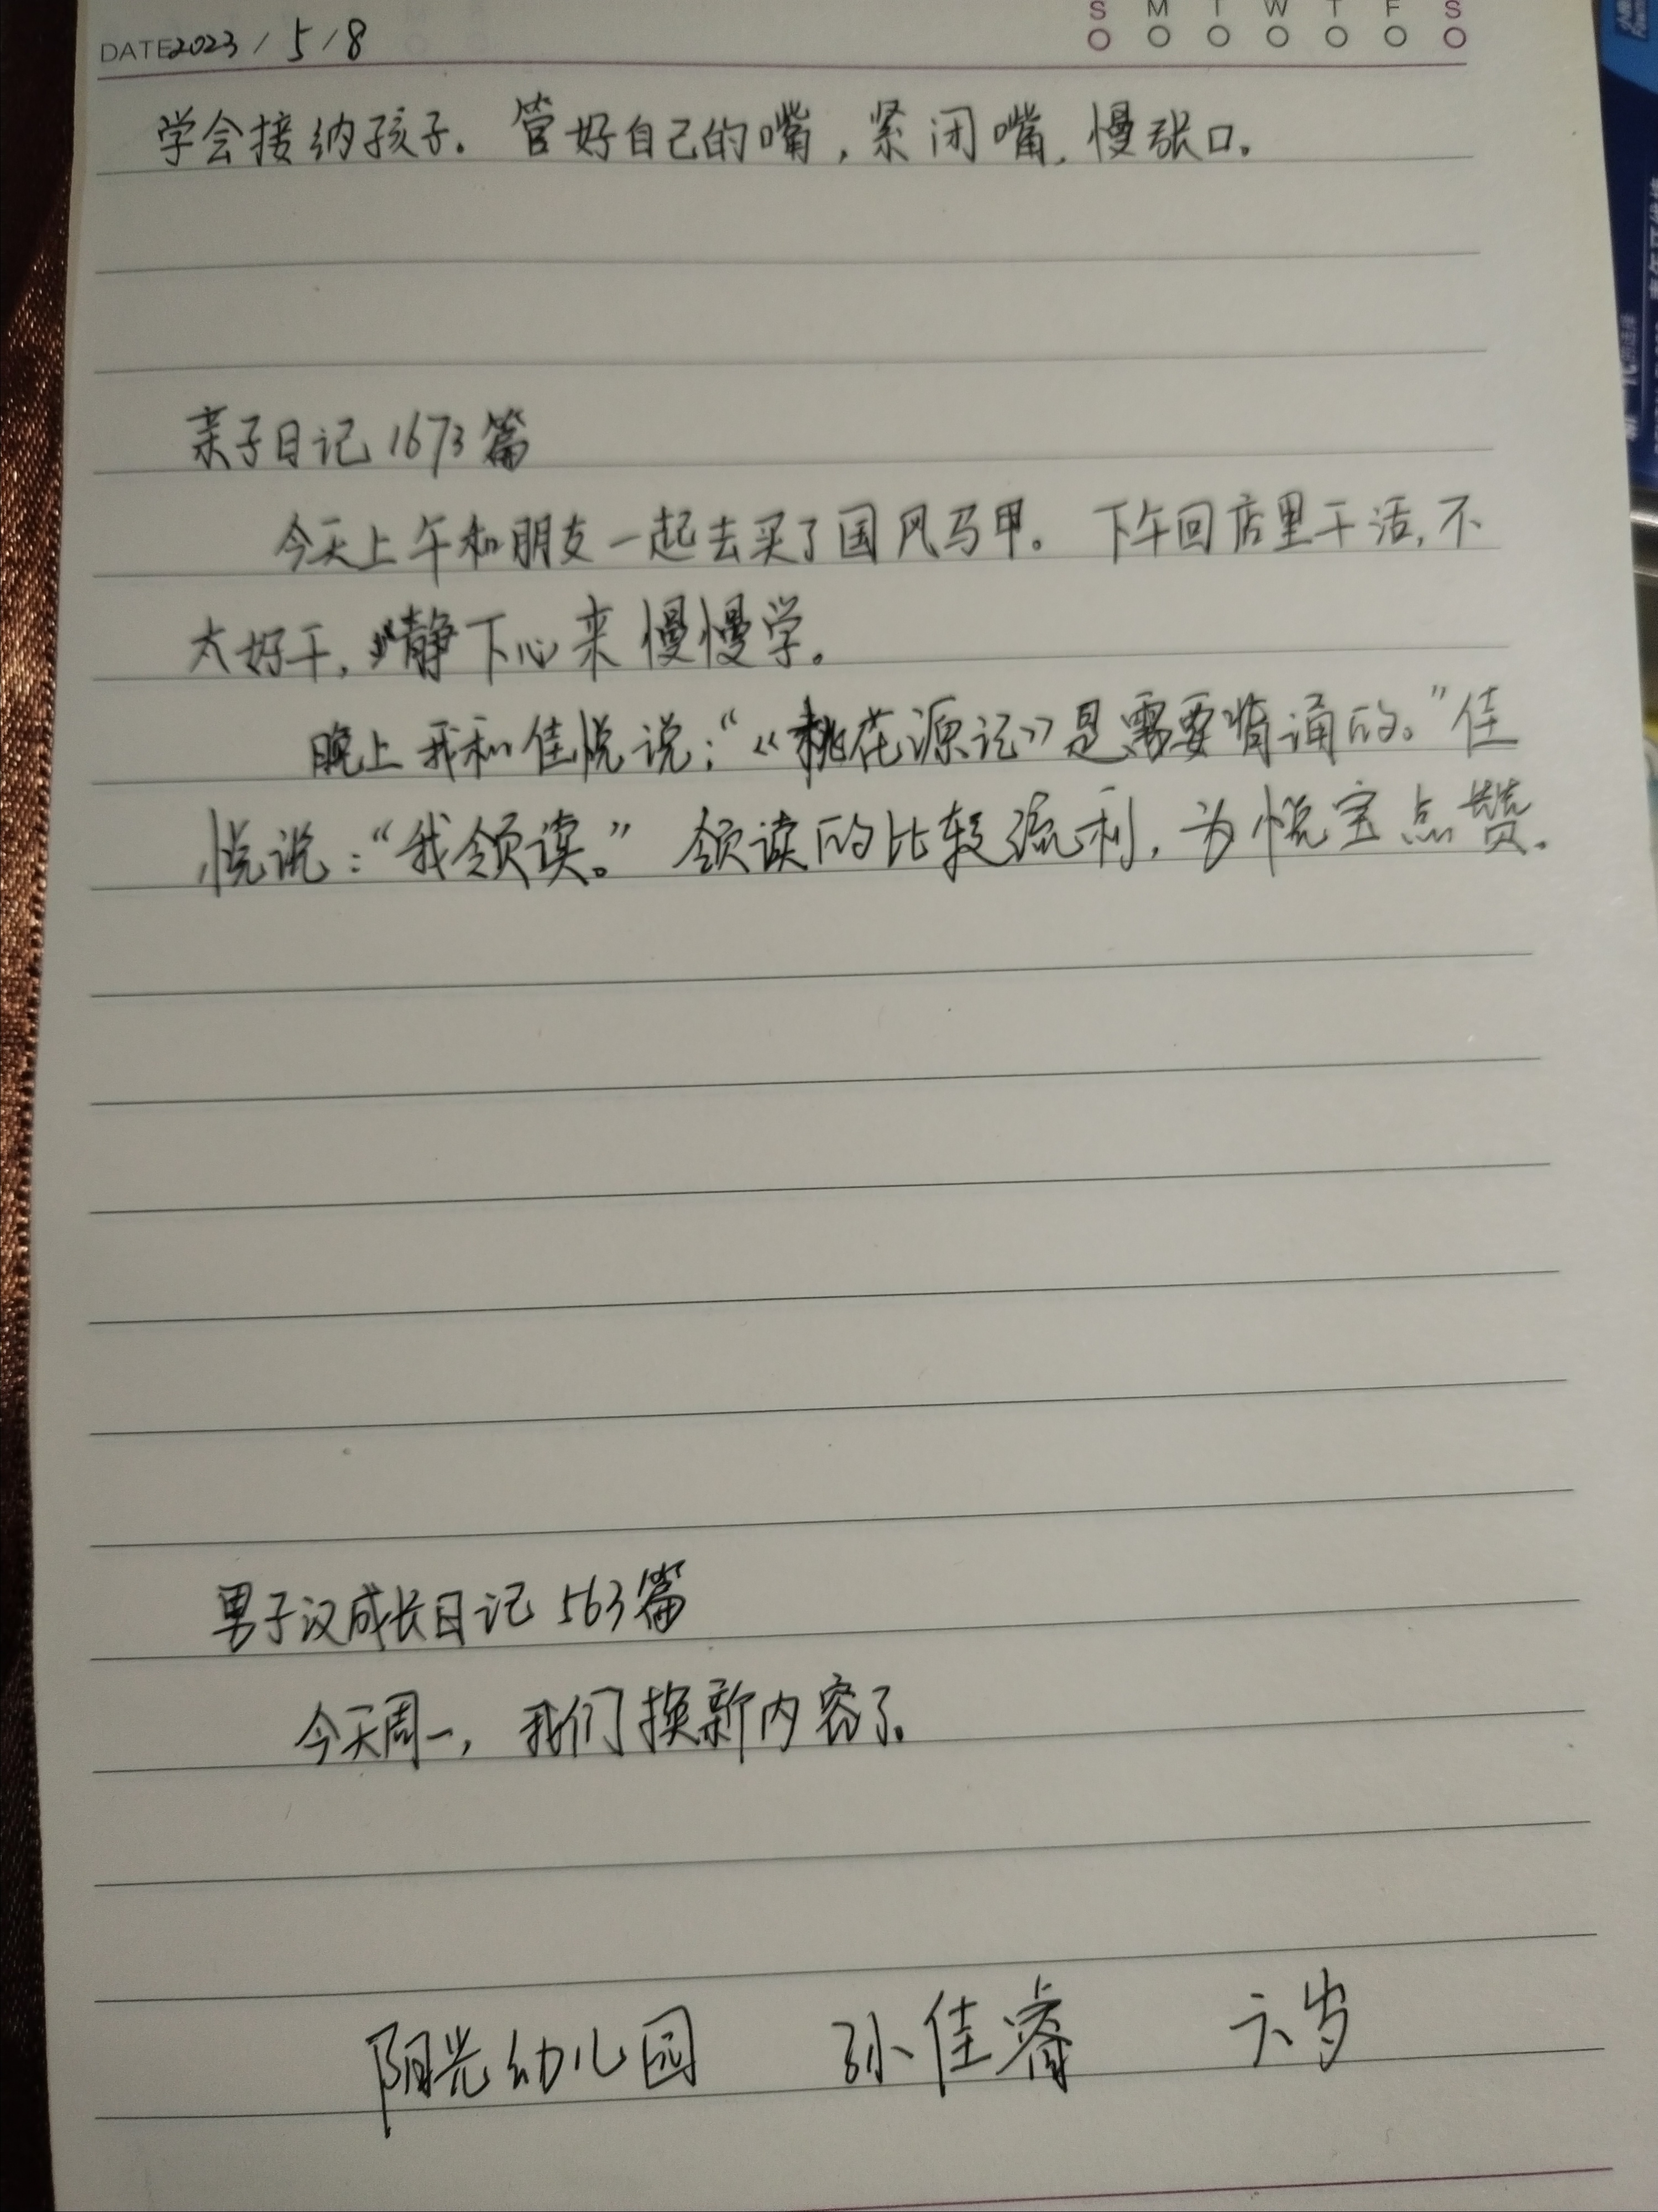 S M T W T F S
DATE 2023 / 5 / 8
学会接纳孩子。管好自己的嘴，紧闭嘴，慢张口。
亲子日记1673篇
今天上午和朋友一起去买了国风马甲。下午回店里干活，不
太好干，静下心来慢慢学。
晚上我和佳悦说：“《桃花源记》是需要背诵的。”佳
悦说：“我领读。”领读的比较流利，为悦宝点赞。
男子汉成长日记563篇
今天周一，我们换新内容了。
阳光幼儿园 孙佳睿 六岁